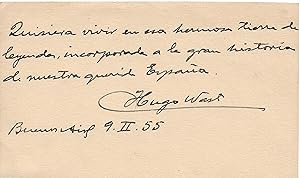 Quisiera vivir en esa hermosa tierra de
leyendas, incorporada a la gran historia
de nuestra querida España.
Hugo Wast
Buenos Aires 9. II. 55